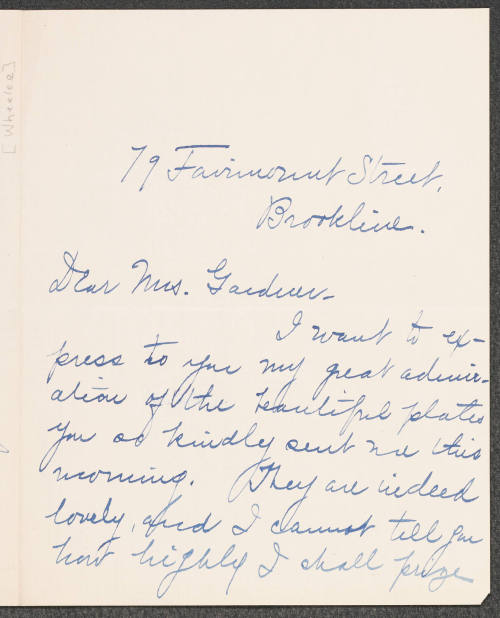 [Wheeler]
79 Fairmount Street,
Brookline.
Dear Mrs. Gardner-
I want to ex-
press to you my great admir-
ation of the beautiful plates
you so kindly sent me this
morning. They are indeed
lovely, and I cannot tell you
how highly I shall prize